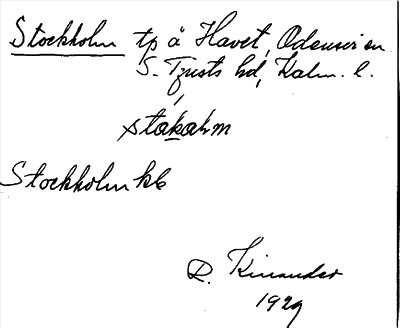 Stockholm tp å Havet, Odensvi sn
S. Tjusts hd, Kalm. l.
stakahm
Stockholm kb
R. Kinander
1929